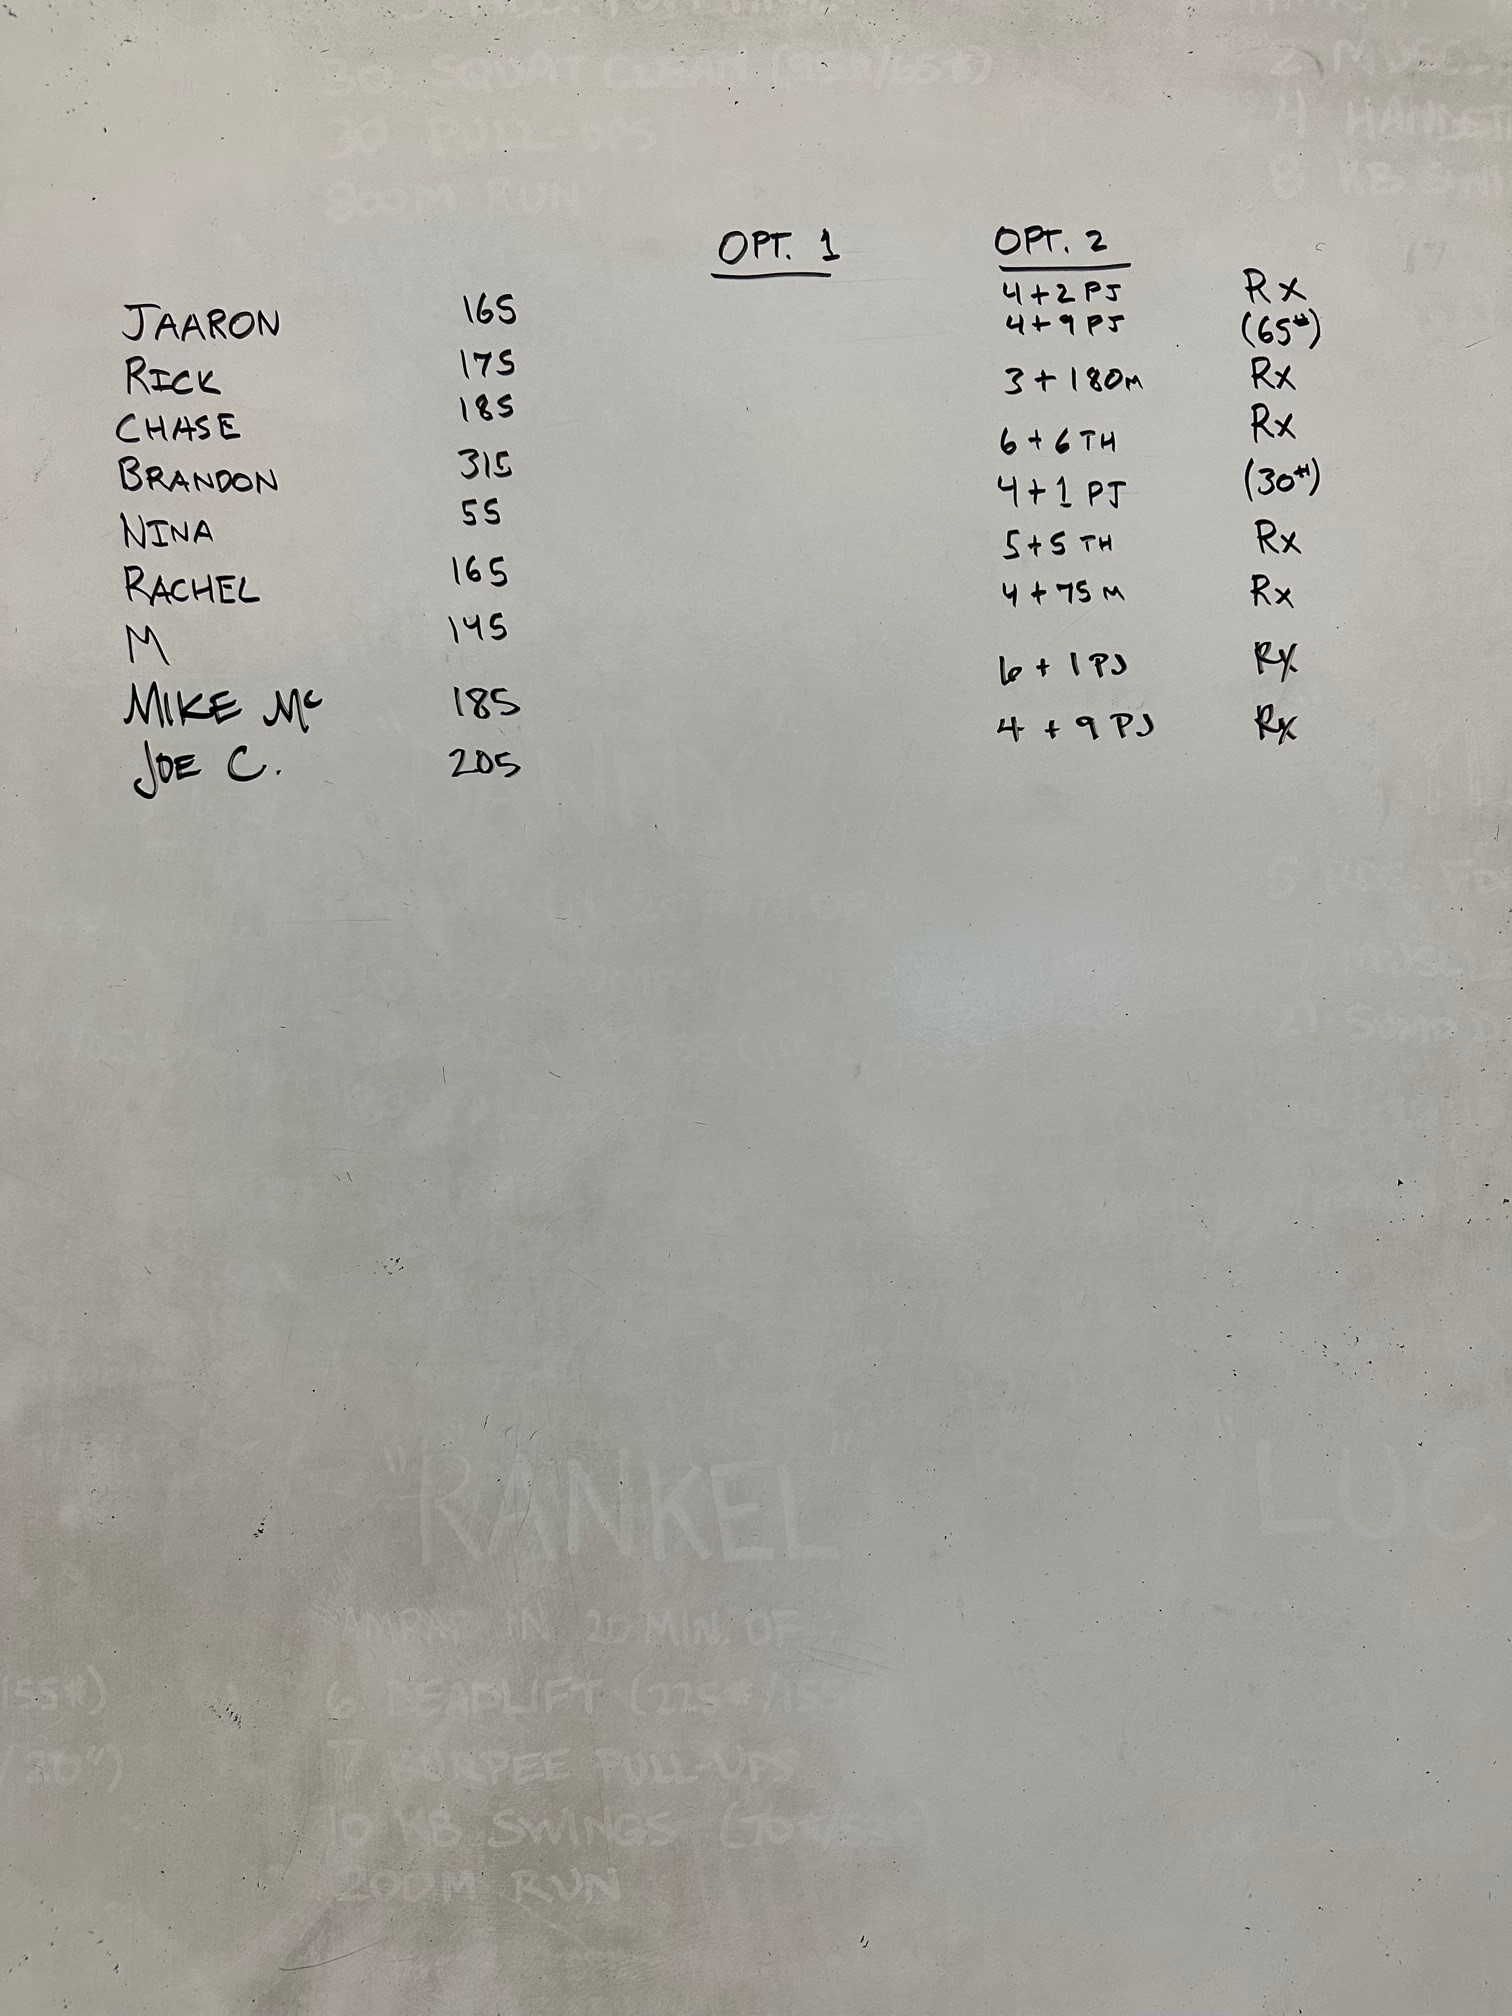 30 SQUAT CLEAN (95#/65#)
30 PULL-UPS
800M RUN
4
8 KB
OPT. 1 OPT. 2
JAARON 165 4+2 PJ Rx
RICK 175 4+9 PJ (65#)
CHASE 185 3+180M Rx
BRANDON 315 6+6 TH Rx
NINA 55 4+1 PJ (30#)
RACHEL 165 5+5 TH Rx
M 145 4+75M Rx
MIKE Mc 185 6+1 PJ Rx
JOE C. 205 4+9 PJ Rx
21 SUMO D
"RANKEL" "LUC
AMRAP IN 20 MIN. OF
155#) 6 DEADLIFT (225#/155
/20") 7 BURPEE PULL-UPS
10 KB SWINGS (70#/53#)
200M RUN